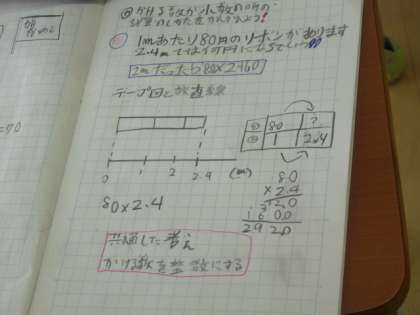 かける数が小数の時の
計算のしかたを考えよう!
1mあたり80円のリボンがあります
2.4mでは何円になるでしょう
2mだったら80×2=160
テープ図と数直線
円 80 ?
m 1 2.4
0 1 2 2.4 (m)
80×2.4
80
×2.4
320
160 0
192 0
共通した考え
かける数を整数にする